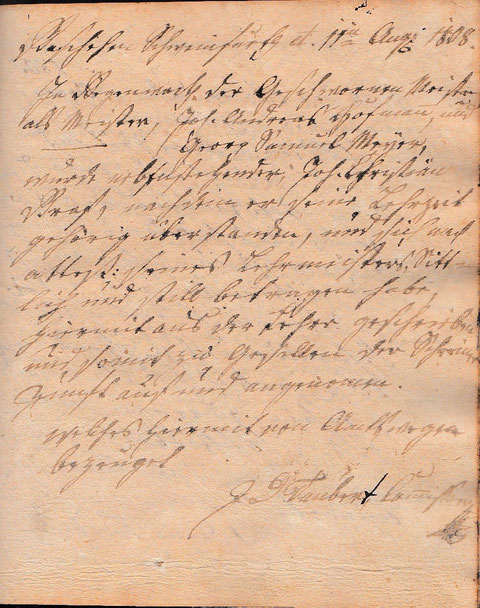 Geschehen Schweinfurth d. 11ten Aug: 1808.
In Gegenwart der Geschwornen Meister
als Meister, Joh. Andreas Hofman, und
Georg Samuel Meyer,
wurde nebenstehender, Joh. Christian
Graf, nachdem er seine Lehrzeit
gehörig überstanden, und sich nach
attest: seines Lehrmeisters Sitt-
lich und still betragen habe,
hiermit aus der Lehre geschrieben
und somit zu Gesellen der Schreiner
Zunft auf und angenomen.
welches hiermit von Amtswegen
bezeuget
Taubert